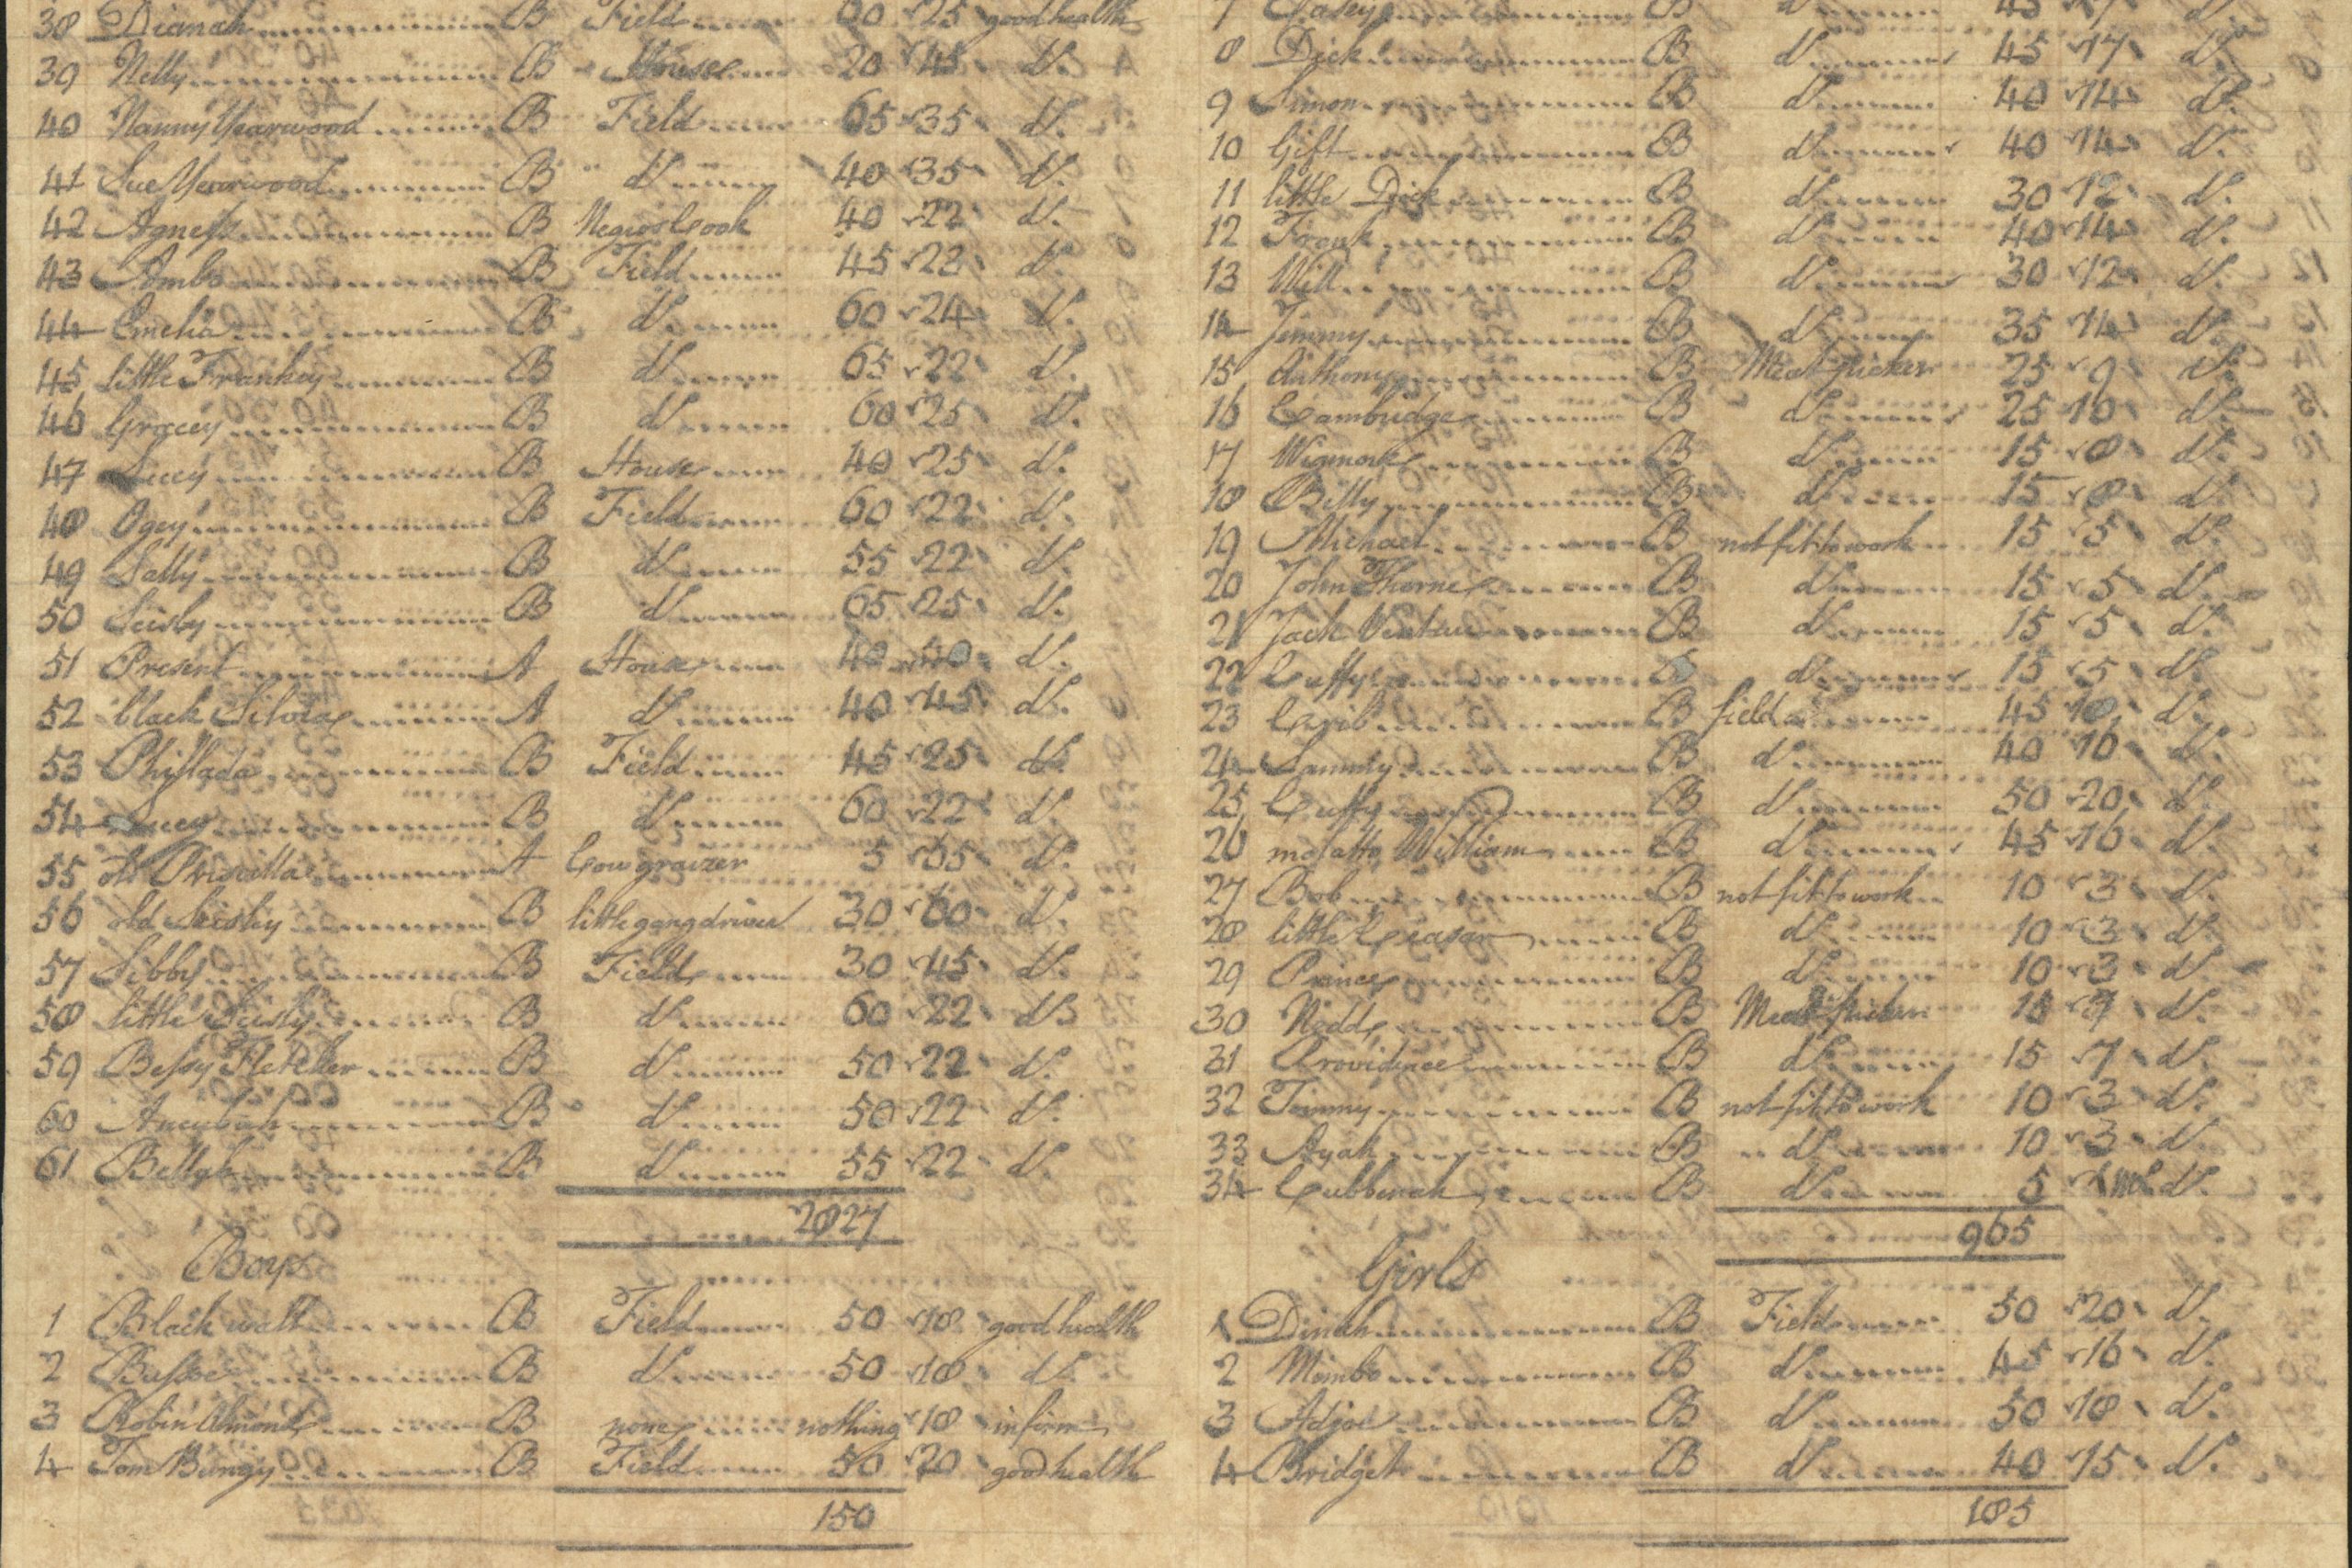 38 Dianah B Field 60 25 good health
39 Nelly B House 20 45 do.
40 Nanny Yearwood B Field 65 35 do.
41 Sue Yearwood B do 40 35 do.
42 Agness B Negroe Cook 40 22 do.
43 Ambo B Field 45 23 do.
44 Emelia B do 60 24 do.
45 little Frankey B do 65 22 do.
46 Gracey B do 60 25 do.
47 Lucey B House 40 25 do.
48 Ogey B Field 60 22 do.
49 Sally B do 55 22 do.
50 Seisby B do 65 25 do.
51 Present A House 40 40 do.
52 black Silvia A do 40 45 do.
53 Phillada B Field 45 25 do.
54 Lucey B do 60 22 do.
55 old Priscilla A Cow graizer 5 65 do.
56 old Seisley B little gang driver 30 60 do.
57 Sibby B Field 30 45 do.
58 little B do 60 22 do.
59 Bessy Fletcher B do 50 22 do.
60 Aucubah B do 50 22 do.
61 Bellah B do 55 22 do.
2827
Boys
1 Black walt B Field 50 18 good health
2 Bassoe B do 50 18 do.
3 Robin Almond B none nothing 18 infirm
4 Tom Bungy B Field 50 20 good health
150
7 Casey B do 45 17 do.
8 Dick B do 45 17 do.
9 Simon B do 40 14 do.
10 Gift B do 40 14 do.
11 little Dick B do 30 12 do.
12 Frank B do 40 14 do.
13 Will B do 30 12 do.
14 Jimmy B do 35 14 do.
15 Anthony B Meat picker 25 9 do.
16 Cambridge B do 25 10 do.
17 Wigmork B do 15 8 do.
18 Billy B do 15 8 do.
19 Michael B not fit to work 15 5 do.
20 John Thorne B do 15 5 do.
21 Jack Venture B do 15 5 do.
22 Cuffy B do 15 5 do.
23 B field 45 18 do.
24 Sammy B do 40 16 do.
25 Cuffy B do 50 20 do.
26 molatto William B do 45 16 do.
27 Bob B not fit to work 10 3 do.
28 little Ceasar B do 10 3 do.
29 Prince B do 10 3 do.
30 Nedd B Meat picker 15 7 do.
31 Providence B do 15 7 do.
32 Tommy B not fit to work 10 3 do.
33 Ayah B do 10 3 do.
34 Cubbenah B do 5 do.
965
Girls
1 Dinah B Field 50 20 do.
2 Mimbo B do 45 16 do.
3 Adjoe B do 50 18 do.
4 Bridget B do 40 15 do.
185